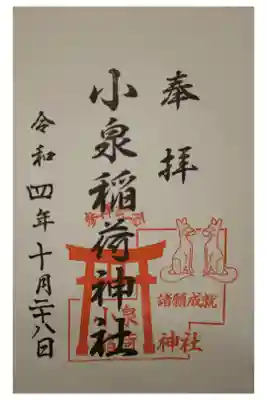 奉拝
小泉稲荷神社
令和四年十月二十八日
諸願成就
小泉
稲荷
神社